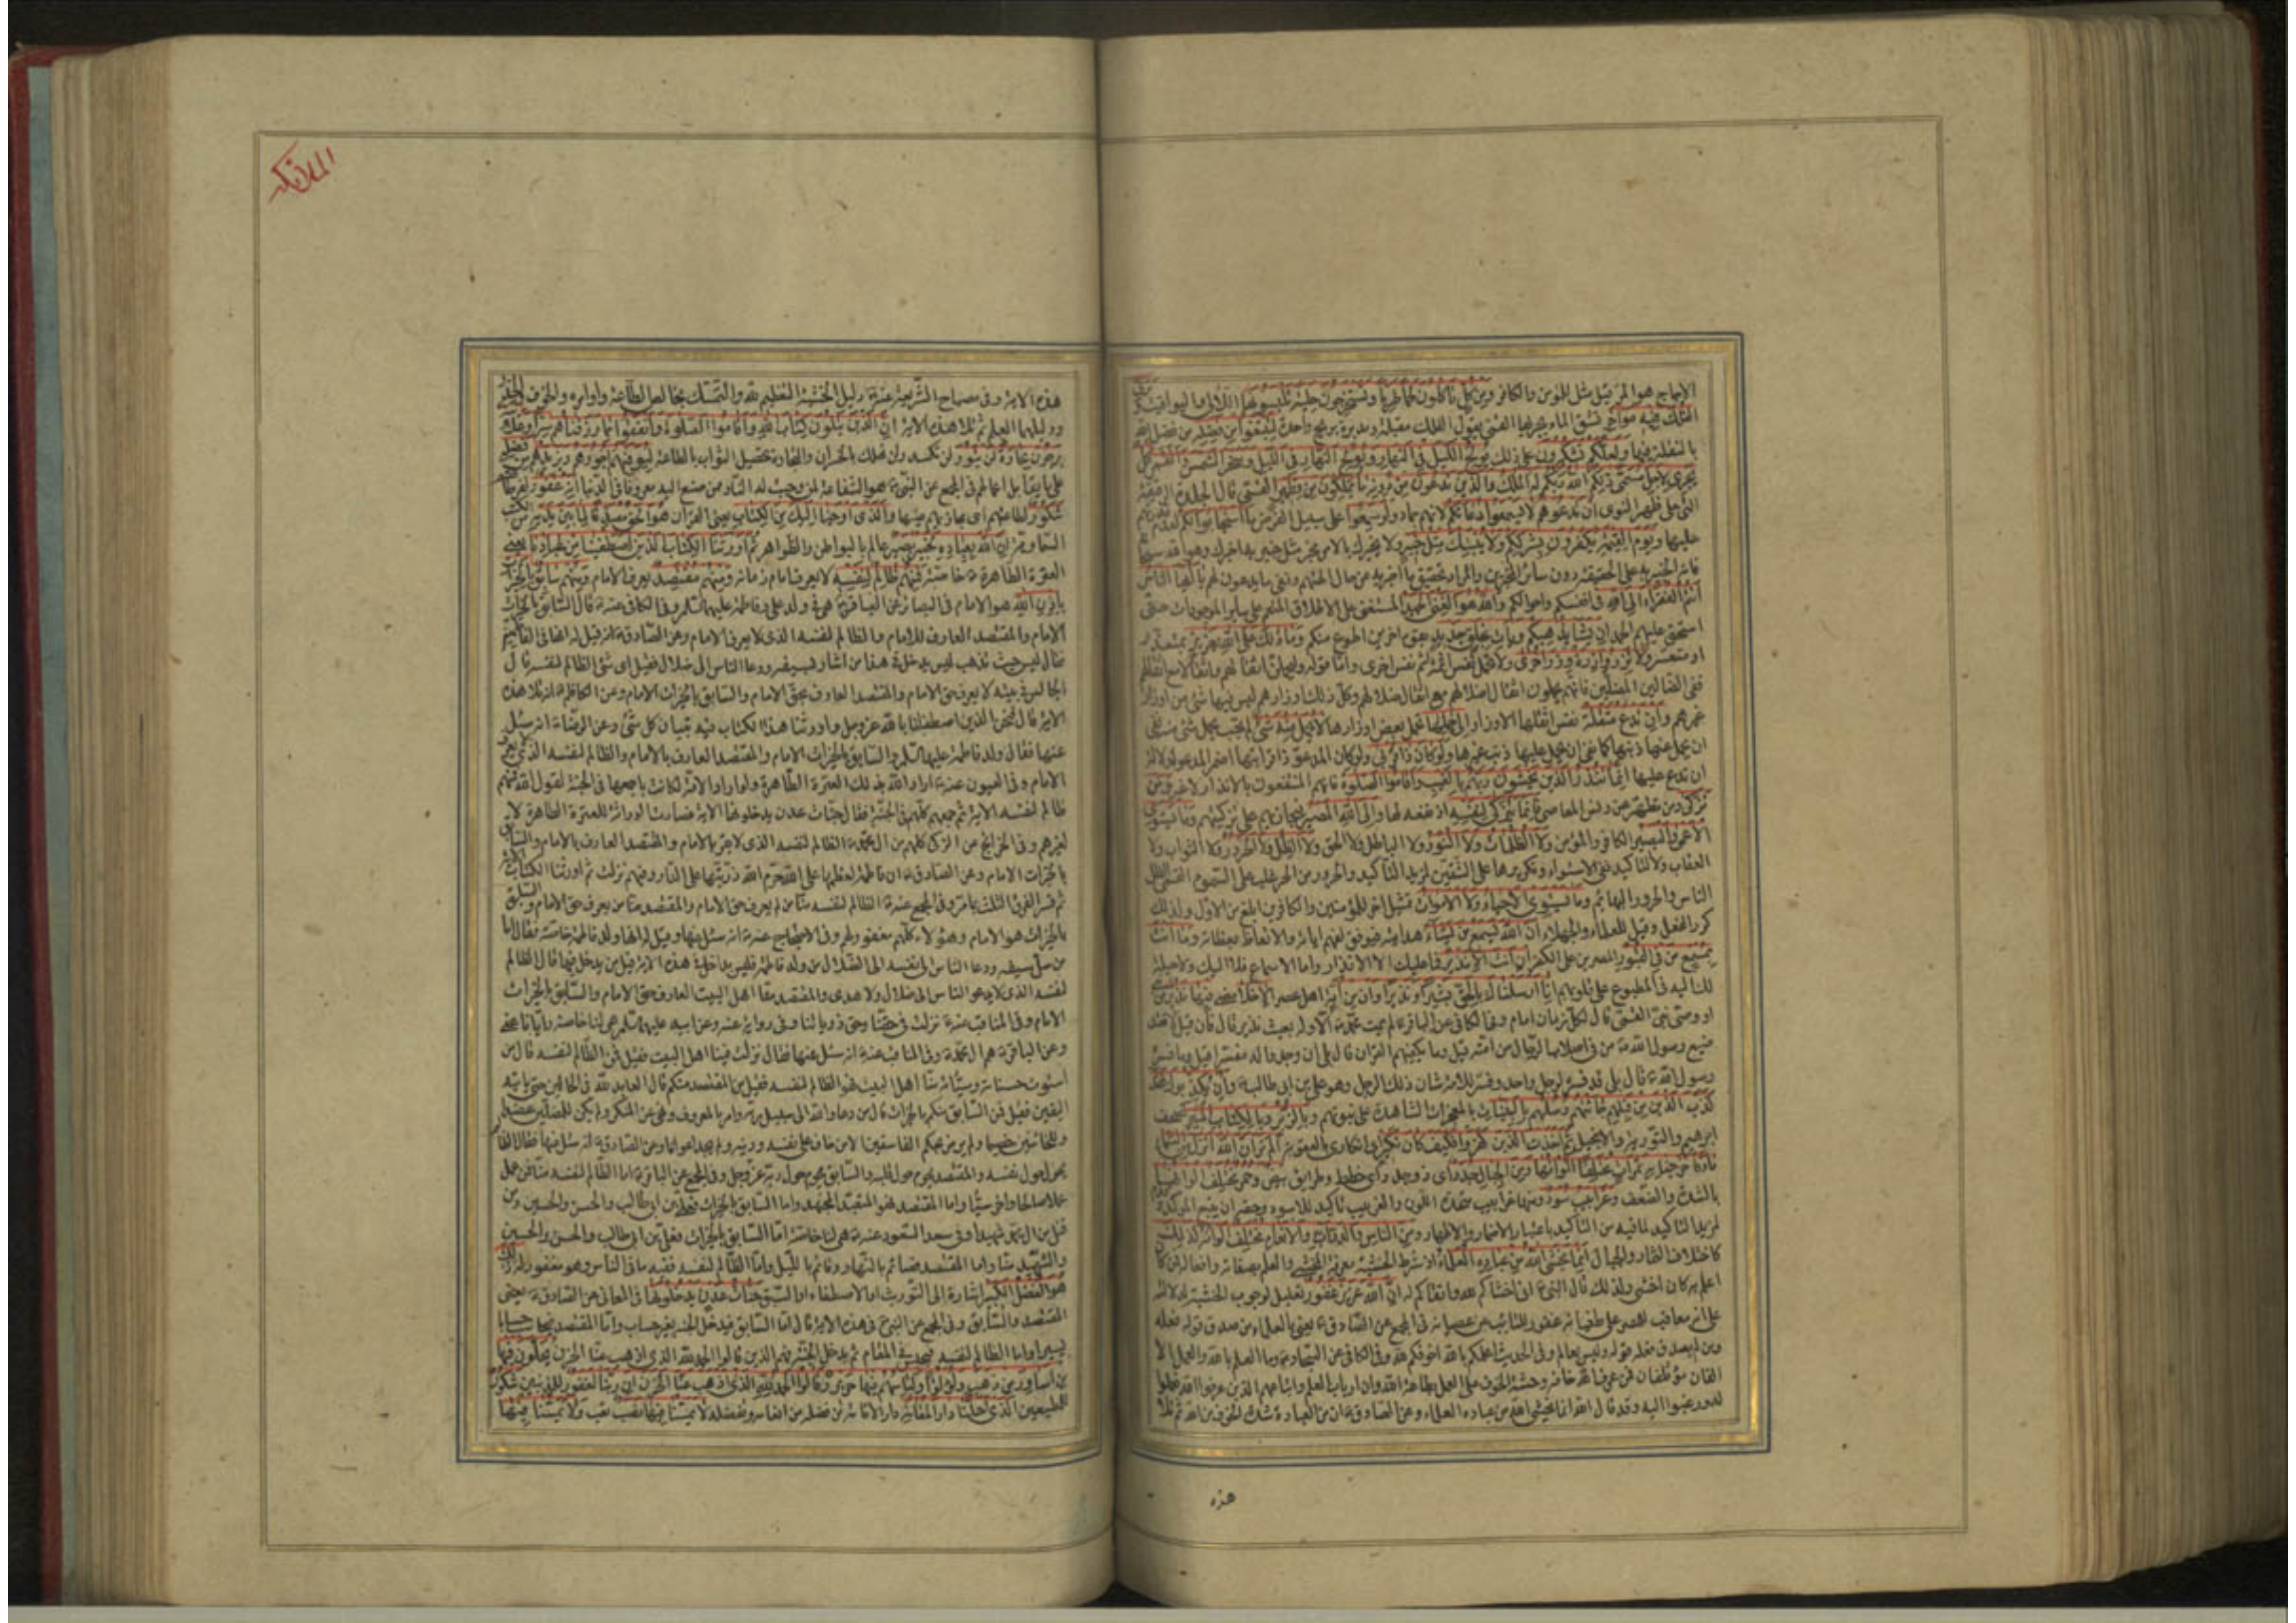 الاجاج هو المر قيل مثل للمؤمن والكافر ومن كل تاكلون لحما طريا وتستخرجون حلية تلبسونها اللآلى واليواقيت وترى
الفلك فيه مواخر تشق الماء بجريها القمى يقول الفلك مقبلة ومدبرة بريح واحدة لتبتغوا من فضله من فضل الله
بالنقلة فيها ولعلكم تشكرون على ذلك يولج الليل فى النهار ويولج النهار فى الليل وسخر الشمس والقمر كل
يجرى لاجل مسمى ذلكم الله ربكم له الملك والذين تدعون من دونه ما يملكون من قطمير القمى قال الجلدة الرقيقة
التى على ظهر النوى ان تدعوهم لا يسمعوا دعائكم لانهم جماد ولو سمعوا على سبيل الفرض ما استجابوا لكم لعدم قدرتهم
عليها ويوم القيمة يكفرون بشرككم ولا ينبئك مثل خبير ولا يخبرك بالامر مخبر مثل خبير به اخبرك وهو الله سبحانه
فانه الخبير به على الحقيقة دون سائر المخبرين والمراد تحقيق ما اخبر به من حال الهتهم ونفى ما يدعون لهم يا ايها الناس
انتم الفقراء الى الله فى انفسكم واحوالكم والله هو الغنى الحميد المستغنى على الاطلاق المنعم على سائر الموجودات حتى
استحق عليهم الحمد ان يشا يذهبكم ويات بخلق جديد بقوم اخرين اطوع منكم وما ذلك على الله بعزيز بمتعذر
او متعسر ولا تزر وازرة وزر اخرى ولا تحمل نفس اثمة اثم نفس اخرى واما قوله وليحملن اثقالهم واثقالا مع اثقالهم
ففى الضالين المضلين فانهم يحملون اثقال اضلالهم مع اثقال ضلالهم وكل ذلك اوزارهم ليس فيها شئ من اوزار
غيرهم وان تدع مثقلة نفس اثقلها الاوزار الى حملها تحمل بعض اوزارها لا يحمل منه شئ لم تجب بحمل شئ منه نفى
ان يحمل عنها ذنبها كما نفى ان يحمل عليها ذنب غيرها ولو كان ذا قربى ولو كان المدعو ذا قرابتها اضمر المدعو لدلالة
ان تدع عليها انما تنذر الذين يخشون ربهم بالغيب واقاموا الصلوة فانهم المنتفعون بالانذار لا غير ومن
تزكى ومن تطهر عن دنس المعاصى فانما يتزكى لنفسه اذ نفعه لها والى الله المصير فيجازيهم على تزكيهم وما يستوى
الاعمى والبصير الكافر والمؤمن ولا الظلمات ولا النور ولا الباطل ولا الحق ولا الظل ولا الحرور ولا الثواب ولا
العقاب ولا لتاكيد نفى الاستواء وتكريرها على الشقين لمزيد التاكيد والحرور من الحر غلب على السموم القمى الظل
الناس والحرور البهائم وما يستوى الاحياء ولا الاموات تمثيل اخر للمؤمنين والكافرين ابلغ من الاول ولذلك
كرر الفعل وقيل للعلماء والجهلاء ان الله يسمع من يشاء هدايته فيوفق لفهم اياته والاتعاظ بعظاته وما انت
بمسمع من فى القبور المصرين على الكفر ان انت الا نذير فما عليك الا الانذار واما الاسماع فلا اليك ولا حيلة
لك اليه فى المطبوع على قلوبهم انا ارسلناك بالحق بشيرا ونذيرا وان من امة اهل عصر الا خلا مضى فيها نذير من نبى
او وصى نبى القمى قال لكل زمان امام وفى الكافى عن الباقر لم يمت محمد الا وله بعيث نذير قال فان قيل لا فقد
ضيع رسول الله من فى اصلاب الرجال من امته قيل وما يكفيهم القران قال بلى ان وجدوا له مفسرا قيل وما فسره
رسول الله قال بلى قد فسره لرجل واحد وفسر للامة شان ذلك الرجل وهو على بن ابى طالب وان يكذبوك فقد
كذب الذين من قبلهم جائتهم رسلهم بالبينات بالمعجزات الشاهدة على نبوتهم وبالزبر وبالكتاب المنير كصحف
ابرهيم والتورية والانجيل ثم اخذت الذين كفروا فكيف كان نكير اى انكارى بالعقوبة الم تر ان الله انزل من السماء
ماء فاخرجنا به ثمرات مختلفا الوانها ومن الجبال جدد اى ذو جدد اى خطط وطرايق بيض وحمر مختلف الوانها
بالشدة والضعف وغرابيب سود ومنها غرابيب متحدة اللون والغربيب تاكيد للاسود
لمزيد التاكيد لما فيه من التاكيد باعتبار الاضمار والاظهار ومن الناس والدواب والانعام مختلف الوانه كذلك
كاختلاف الثمار والجبال انما يخشى الله من عباده العلماء اذ شرط الخشية معرفة المخشى والعلم بصفاته وافعاله فمن كان
اعلم به كان اخشى ولذلك قال النبى انى اخشاكم لله واتقاكم له ان الله عزيز غفور تعليل لوجوب الخشية لدلالته
على انه معاقب للمصر على طغيانه غفور للتائب عن عصيانه فى المجمع عن الصادق يعنى بالعلماء من صدق قوله فعله
ومن لم يصدق فعله قوله فليس بعالم وفى الحديث اعلمكم بالله اخوفكم لله وفى الكافى عن السجاد وما العلم بالله والعمل الا
الفان مؤتلفان فمن عرف الله خافه وحثه الخوف على العمل بطاعة الله وان ارباب العلم واتباعهم الذين عرفوا الله فعملوا
له ورغبوا اليه وقد قال الله انما يخشى الله من عباده العلماء وعن الصادق ان من العبادة شدة الخوف من الله ثم تلا
هذه
الملائكه
هذه الاية وفى مصباح الشريعة عنه دليل الخشية التعظيم لله والتمسك بخالص الطاعة واوامره والخوف والحذر
ودليلهما العلم ثم تلا هذه الاية ان الذين يتلون كتاب الله واقاموا الصلوة وانفقوا مما رزقناهم سرا وعلانية
يرجون تجارة لن تبور لن تكسد ولن تهلك بالخسران والتجارة تحصيل الثواب بالطاعة ليوفيهم اجورهم ويزيدهم من فضله
على ما يقابل اعمالهم فى المجمع عن النبى هو الشفاعة لمن وجبت له النار ممن صنع اليه معروفا فى الدنيا انه غفور لفرطاتهم
شكور لطاعتهم اى مجازيهم عليها والذى اوحينا اليك من الكتاب يعنى القران هو الحق مصدقا لما بين يديه من الكتب
السماوية ان الله بعباده لخبير بصير عالم بالبواطن والظواهر ثم اورثنا الكتاب الذين اصطفينا من عبادنا يعنى
العترة الطاهرة خاصة فمنهم ظالم لنفسه لا يعرف امام زمانه ومنهم مقتصد يعرف الامام ومنهم سابق بالخيرات
باذن الله هو الامام فى البصائر عن الباقر هى فى ولد على وفاطمة عليهما السلم وفى الكافى عنه قال السابق بالخيرات
الامام والمقتصد العارف للامام والظالم لنفسه الذى لا يعرف الامام وعن الصادق انه قيل له انها فى الفاطميين
فقال ليس حيث تذهب ليس يدخل فى هذا من اشار بسيفه ودعا الناس الى ضلال فقيل اى شئ الظالم لنفسه قال
الجالس فى بيته لا يعرف حق الامام والمقتصد العارف بحق الامام والسابق بالخيرات الامام وعن الكاظم انه تلا هذه
الاية قال فنحن الذين اصطفانا الله عز وجل واورثنا هذا الكتاب فيه تبيان كل شئ وعن الرضا انه سئل
عنها فقال ولد فاطمة عليها السلم والسابق بالخيرات الامام والمقتصد العارف بالامام والظالم لنفسه الذى لا يعرف
الامام وفى العيون عنه اراد الله بذلك العترة الطاهرة ولو اراد الامة لكانت باجمعها فى الجنة لقول الله فمنهم
ظالم لنفسه الاية ثم جمعهم كلهم فى الجنة فقال جنات عدن يدخلونها الاية فصارت الوراثة للعترة الطاهرة لا
لغيرهم وفى الخرايج عن الزكى كلهم من ال محمد الظالم لنفسه الذى لا يقر بالامام والمقتصد العارف بالامام والسابق
بالخيرات الامام وعن الصادق ان فاطمة لعظمها على الله حرم الله ذريتها على النار وفيهم نزلت ثم اورثنا الكتاب الاية
ثم فسر الفرق الثلث بما مر وفى المجمع عنه الظالم لنفسه منا من لم يعرف حق الامام والمقتصد منا من يعرف حق الامام والسابق
بالخيرات هو الامام وهؤلاء كلهم مغفور لهم وفى الاحتجاج عنه انه سئل عنها وقيل له انها لولد فاطمة خاصة فقال اما
من سل سيفه ودعا الناس الى نفسه الى الضلال من ولد فاطمة فليس بداخل فى هذه الاية قيل من يدخل فيها قال الظالم
لنفسه الذى لا يدعو الناس الى ضلال ولا هدى والمقتصد منا اهل البيت العارف حق الامام والسابق بالخيرات
الامام وفى المناقب عنه نزلت فى حقنا وحق ذرياتنا وفى رواية عنه وعن ابيه عليهما السلم هى لنا خاصة وايانا عنى
وعن الباقر هم ال محمد وفى المناقب عنه انه سئل عنها فقال نزلت فينا اهل البيت فقيل فمن الظالم لنفسه قال من
استوت حسناته وسيئاته منا اهل البيت فهو الظالم لنفسه فقيل من المقتصد منكم قال العابد لله فى الحالين حتى ياتيه
اليقين فقيل فمن السابق منكم بالخيرات قال من دعا والله الى سبيل ربه وامر بالمعروف ونهى عن المنكر ولم يكن للمضلين عضدا
وللخائنين خصيما ولم يرض بحكم الفاسقين الا من خاف على نفسه ودينه ولم يجد اعوانا وعن الصادق انه سئل عنها فقال الظالم
يحوم حول نفسه والمقتصد يحوم حول قلبه والسابق يحوم حول ربه عز وجل وفى المجمع عن الباقر اما الظالم لنفسه منا فمن عمل
عملا صالحا واخر سيئا واما المقتصد فهو المتعبد المجتهد واما السابق بالخيرات فعلى بن ابى طالب والحسن والحسين ومن
قتل من ال محمد شهيدا وفى سعد السعود عنه هى لنا خاصة اما السابق بالخيرات فعلى بن ابى طالب والحسن والحسين
والشهيد منا واما المقتصد فصائم بالنهار وقائم بالليل واما الظالم لنفسه ففيه ما فى الناس وهو مغفور له ذلك
هو الفضل الكبير اشارة الى التوريث او الاصطفاء او السبق جنات عدن يدخلونها فى المعانى عن الصادق يعنى
المقتصد والسابق وفى المجمع عن النبى فى هذه الاية قال اما السابق فيدخل الجنة بغير حساب واما المقتصد فيحاسب حسابا
يسيرا واما الظالم لنفسه فيحبس فى المقام ثم يدخل الجنة فهم الذين قالوا الحمد لله الذى اذهب عنا الحزن يحلون فيها
من اساور من ذهب ولؤلؤا ولباسهم فيها حرير وقالوا الحمد لله الذى اذهب عنا الحزن ان ربنا لغفور للمذنبين شكور
للمطيعين الذى احلنا دار المقامة دار الاقامة من فضله من انعامه وتفضله لا يمسنا فيها نصب تعب ولا يمسنا فيها